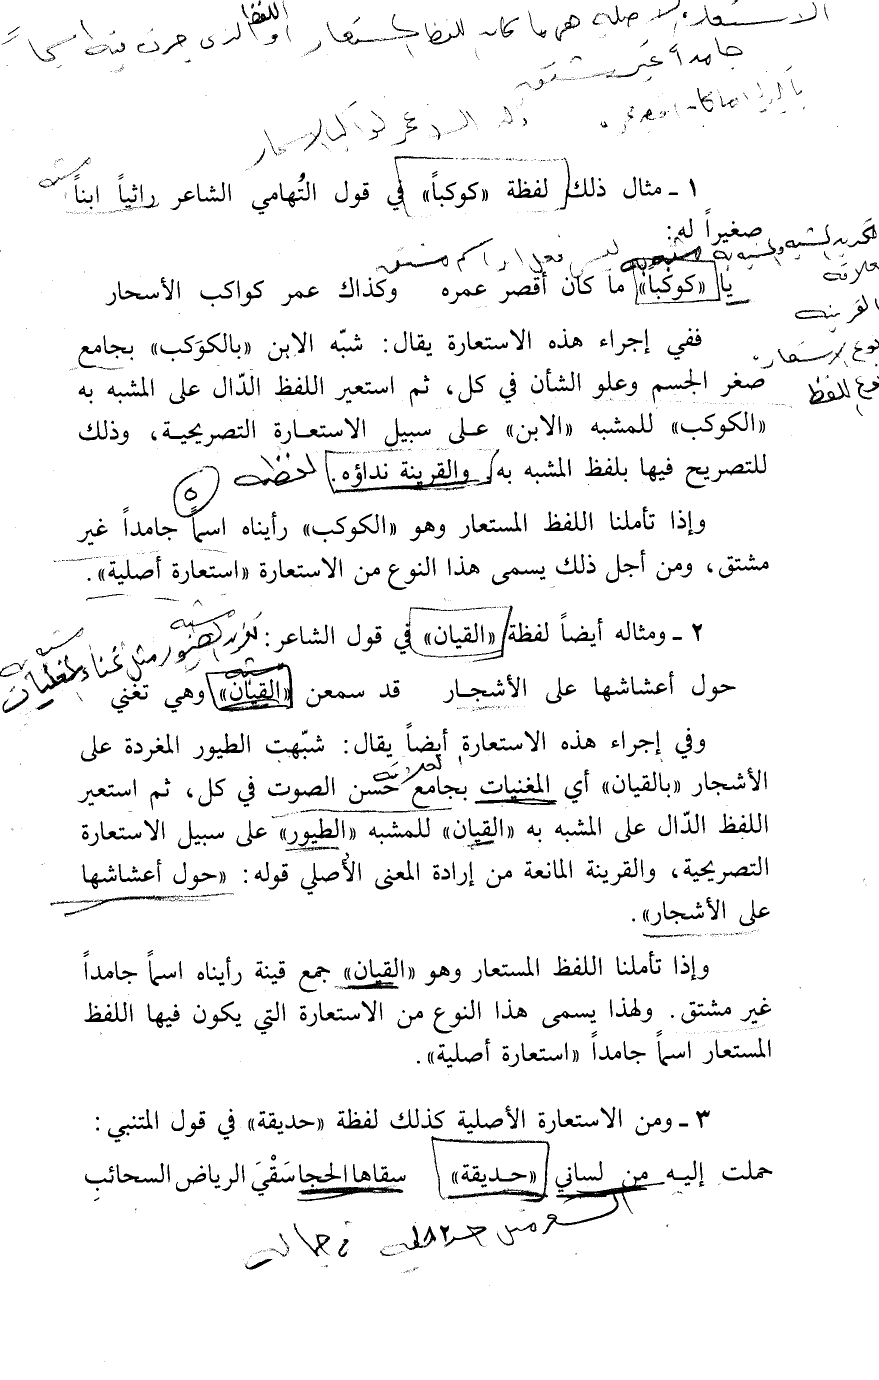 الاستعارة الأصلية هي ما كان اللفظ المستعار أو اللفظ الذي جرت فيه اسماً
جامداً غير مشتق
١ ـ مثال ذلك لفظة «كوكباً» في قول التُهامي الشاعر راثياً ابناً
مشبه
صغيراً له:
ليس فعل اسم مشتق
علاقة
يا «كوكباً» ما كان أقصر عمره وكذاك عمر كواكب الأسحار
القرينة
ففي إجراء هذه الاستعارة يقال: شبّه الابن «بالكوَكب» بجامع
نوع الاستعارة
صغر الجسم وعلو الشأن في كل، ثم استعير اللفظ الدّال على المشبه به
نوع اللفظ
«الكوكب» للمشبه «الابن» على سبيل الاستعارة التصريحية، وذلك
للتصريح فيها بلفظ المشبه به. والقرينة نداؤه. لفظية
٥
وإذا تأملنا اللفظ المستعار وهو «الكوكب» رأيناه اسماً جامداً غير
مشتق، ومن أجل ذلك يسمى هذا النوع من الاستعارة «استعارة أصلية».
مشبه
٢ ـ ومثاله أيضاً لفظة «القيان» في قول الشاعر:
تغريد الطيور مثل غناء المغنيات
مشبه به
حول أعشاشها على الأشجار قد سمعن «القيان» وهي تغني
وفي إجراء هذه الاستعارة أيضاً يقال: شبّهت الطيور المغردة على
الأشجار «بالقيان» أي المغنيات بجامع حُسن الصوت في كل، ثم استعير
اللفظ الدّال على المشبه به «القيان» للمشبه «الطيور» على سبيل الاستعارة
التصريحية، والقرينة المانعة من إرادة المعنى الأصلي قوله: «حول أعشاشها
على الأشجار».
وإذا تأملنا اللفظ المستعار وهو «القيان» جمع قينة رأيناه اسماً جامداً
غير مشتق. ولهذا يسمى هذا النوع من الاستعارة التي يكون فيها اللفظ
المستعار اسماً جامداً «استعارة أصلية».
٣ ـ ومن الاستعارة الأصلية كذلك لفظة «حديقة» في قول المتنبي:
حملت إليه من لساني «حديقة» سقاها الحجا سَقْيَ الرياض السحائبِ
الشعر مثل الحديقة في جماله